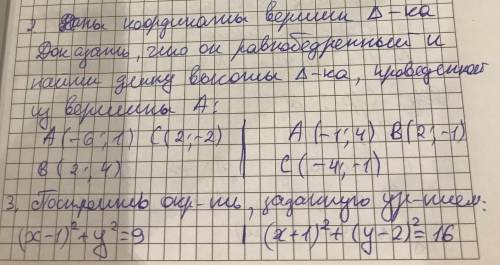 2. Даны координаты вершин Δ-ка
Доказать, что он равнобедренный и
найти длину высоты Δ-ка, проведенной
из вершины А:
А(-6; 1) С(2; -2) | А(-1; 4) В(2; -1)
В(2; 4) | С(-4; -1)
3. Построить окр-ть, заданную ур-нием:
(x-1)²+y²=9 | (x+1)²+(y-2)²=16